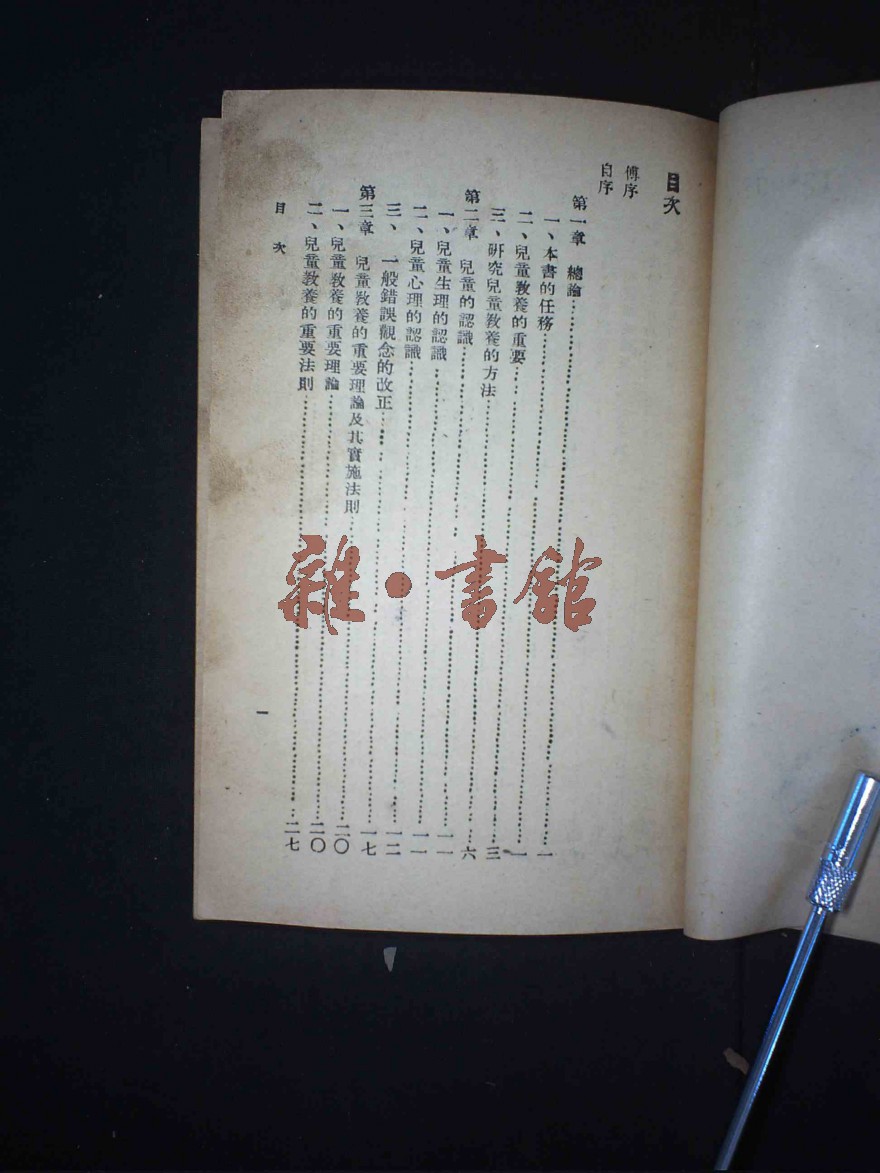 目次
傅序
自序
第一章 總論……一
一、本書的任務……一
二、兒童教養的重要……三
三、研究兒童教養的方法……六
第二章 兒童的認識……一一
一、兒童生理的認識……一一
二、兒童心理的認識……一二
三、一般錯誤觀念的改正……一七
第三章 兒童教養的重要理論及其實施法則……二〇
一、兒童教養的重要理論……二〇
二、兒童教養的重要法則……二七
目次
一
雜·書館